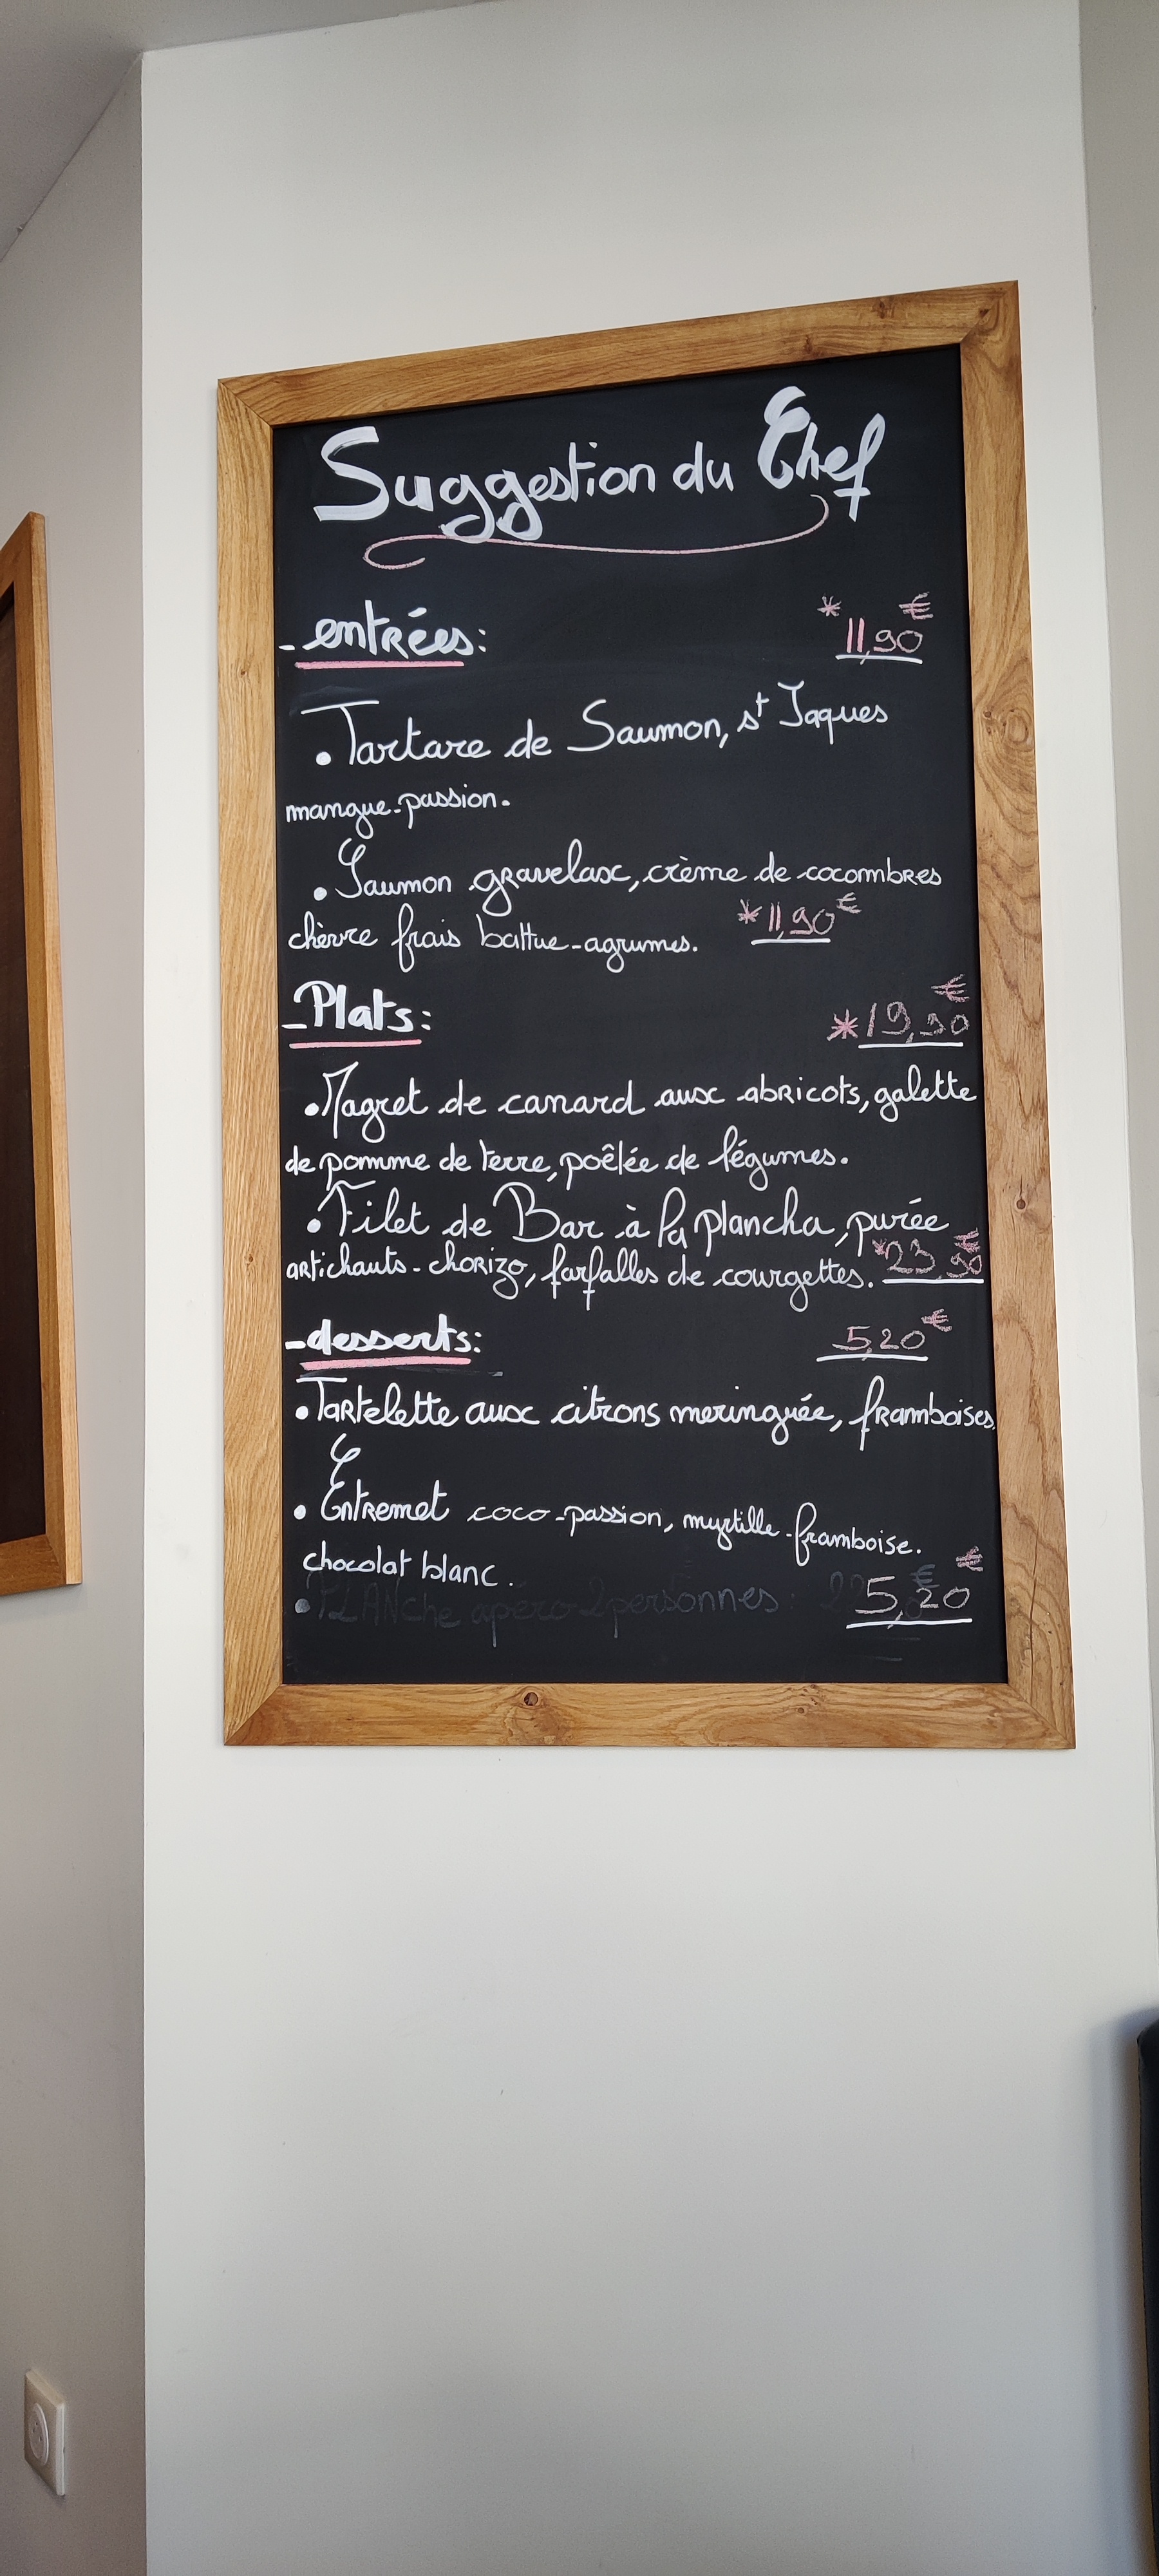 Suggestion du Chef
- entrées: * 11,90€
• Tartare de Saumon, st Jaques
mangue-passion.
• Saumon gravelax, crème de cocombres
chèvre frais battue-agrumes. * 11,90€
- Plats: * 19,90€
• Magret de canard aux abricots, galette
de pomme de terre, poêlée de légumes.
• Filet de Bar à la plancha, purée
artichauts-chorizo, farfalles de courgettes. * 23,90€
- desserts: 5,20€
• Tartelette aux citrons meringuée, framboises.
• Entremet coco-passion, myrtille-framboise.
chocolat blanc.
• PLANche apéro 2 personnes: 5,20€